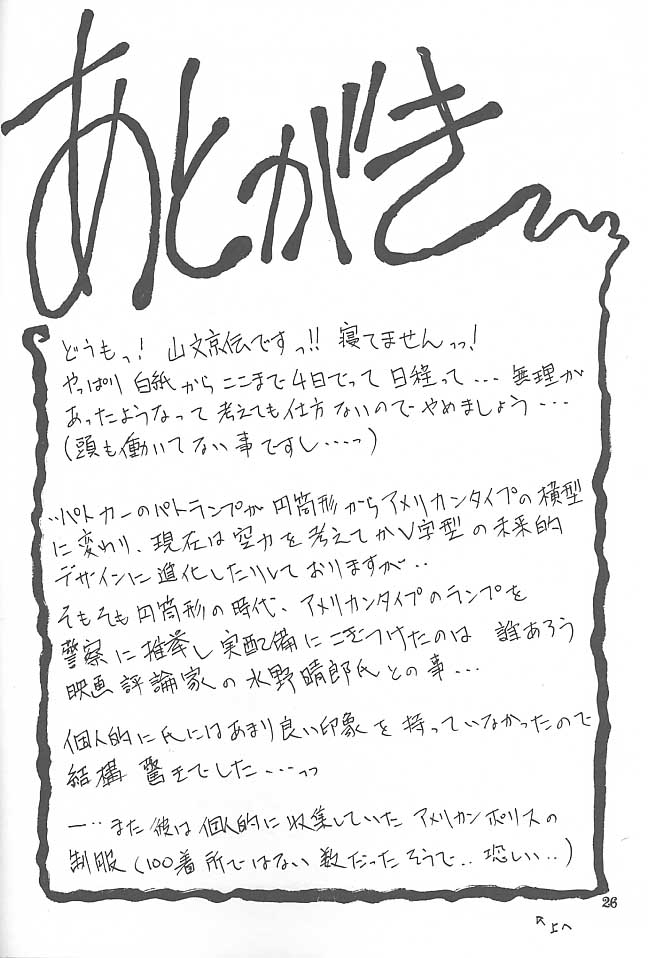 あとがき
どうもっ! 山文京伝ですっ!! 寝てませんっっ!
やっぱり 白紙からここまで4日でって 日程って... 無理が
あったようなって 考えても仕方ないので やめましょう...
(頭も働いてない事ですし...っっ)
..パトカーのパトランプが 円筒形からアメリカンタイプの横型
に変わり、現在は空力を考えてかV字型の未来的
デザインに進化したりしておりますが..
そもそも円筒形の時代、アメリカンタイプのランプを
警察に推挙し実配備にこぎつけたのは 誰あろう
映画評論家の水野晴郎氏との事...
個人的に氏にはあまり良い印象を持っていなかったので
結構 驚きでした...っっ
ー..また彼は個人的に収集していた アメリカンポリスの
制服(100着所ではない数だったそうで.. 恐しい..)
26
↖上へ